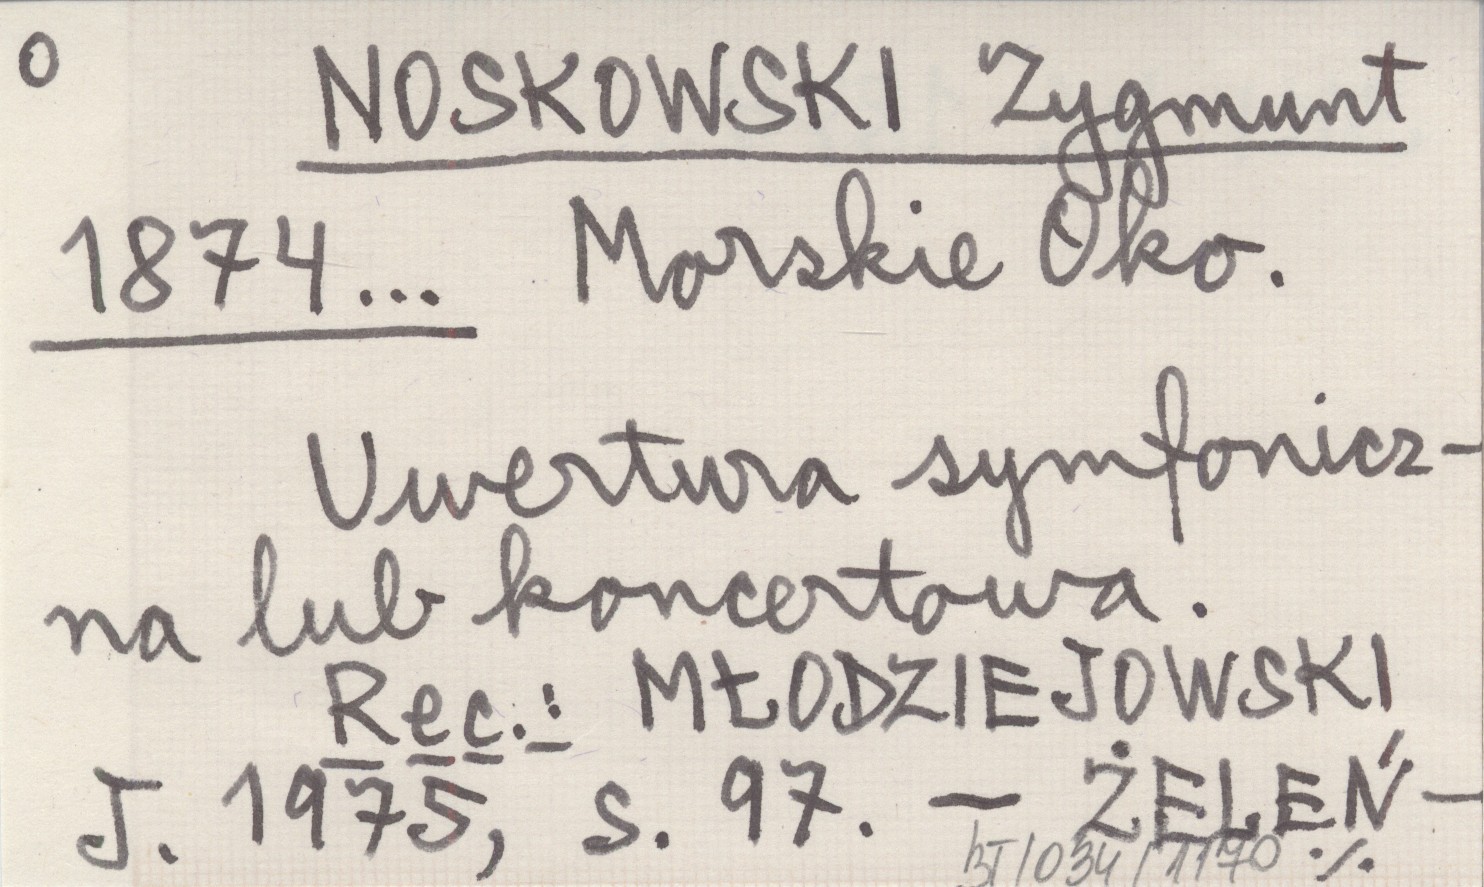 O NOSKOWSKI Zygmunt
1874... Morskie Oko.
Uwertura symfonicz-
na lub koncertowa.
Rec.: MŁODZIEJOWSKI
J. 1975, s. 97. — ŻELEŃ-
BT/034/1170 ./.